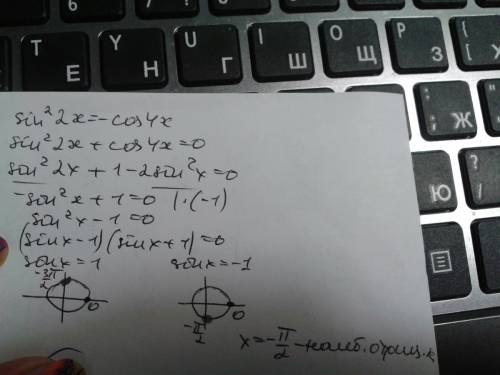 6 7
T Y U I O P {
Е Н Г Ш Щ З [
Ж
Ю
sin² 2x = -cos 4x
sin² 2x + cos 4x = 0
sin² 2x + 1 - 2sin² x = 0
-sin² x + 1 = 0 | · (-1)
sin² x - 1 = 0
(sin x - 1)(sin x + 1) = 0
sin x = 1 sin x = -1
-3π/2 0 0
-π/2 x = -π/2 - наиб. отриц. к